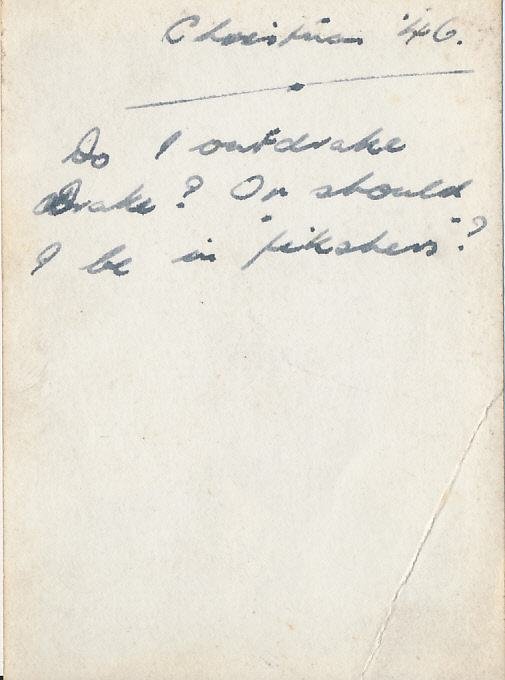 Christmas '46.
Do I outdrake
Drake? Or should
I be in "pikshers"?